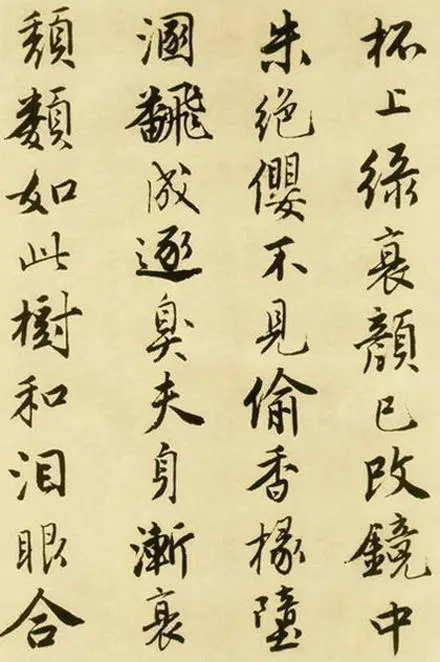 杯上綠衰顏已改鏡中
朱絕纓不見偷香椽墮
溷飜成逐臭夫身漸衰
頹類如此樹和泪眼合